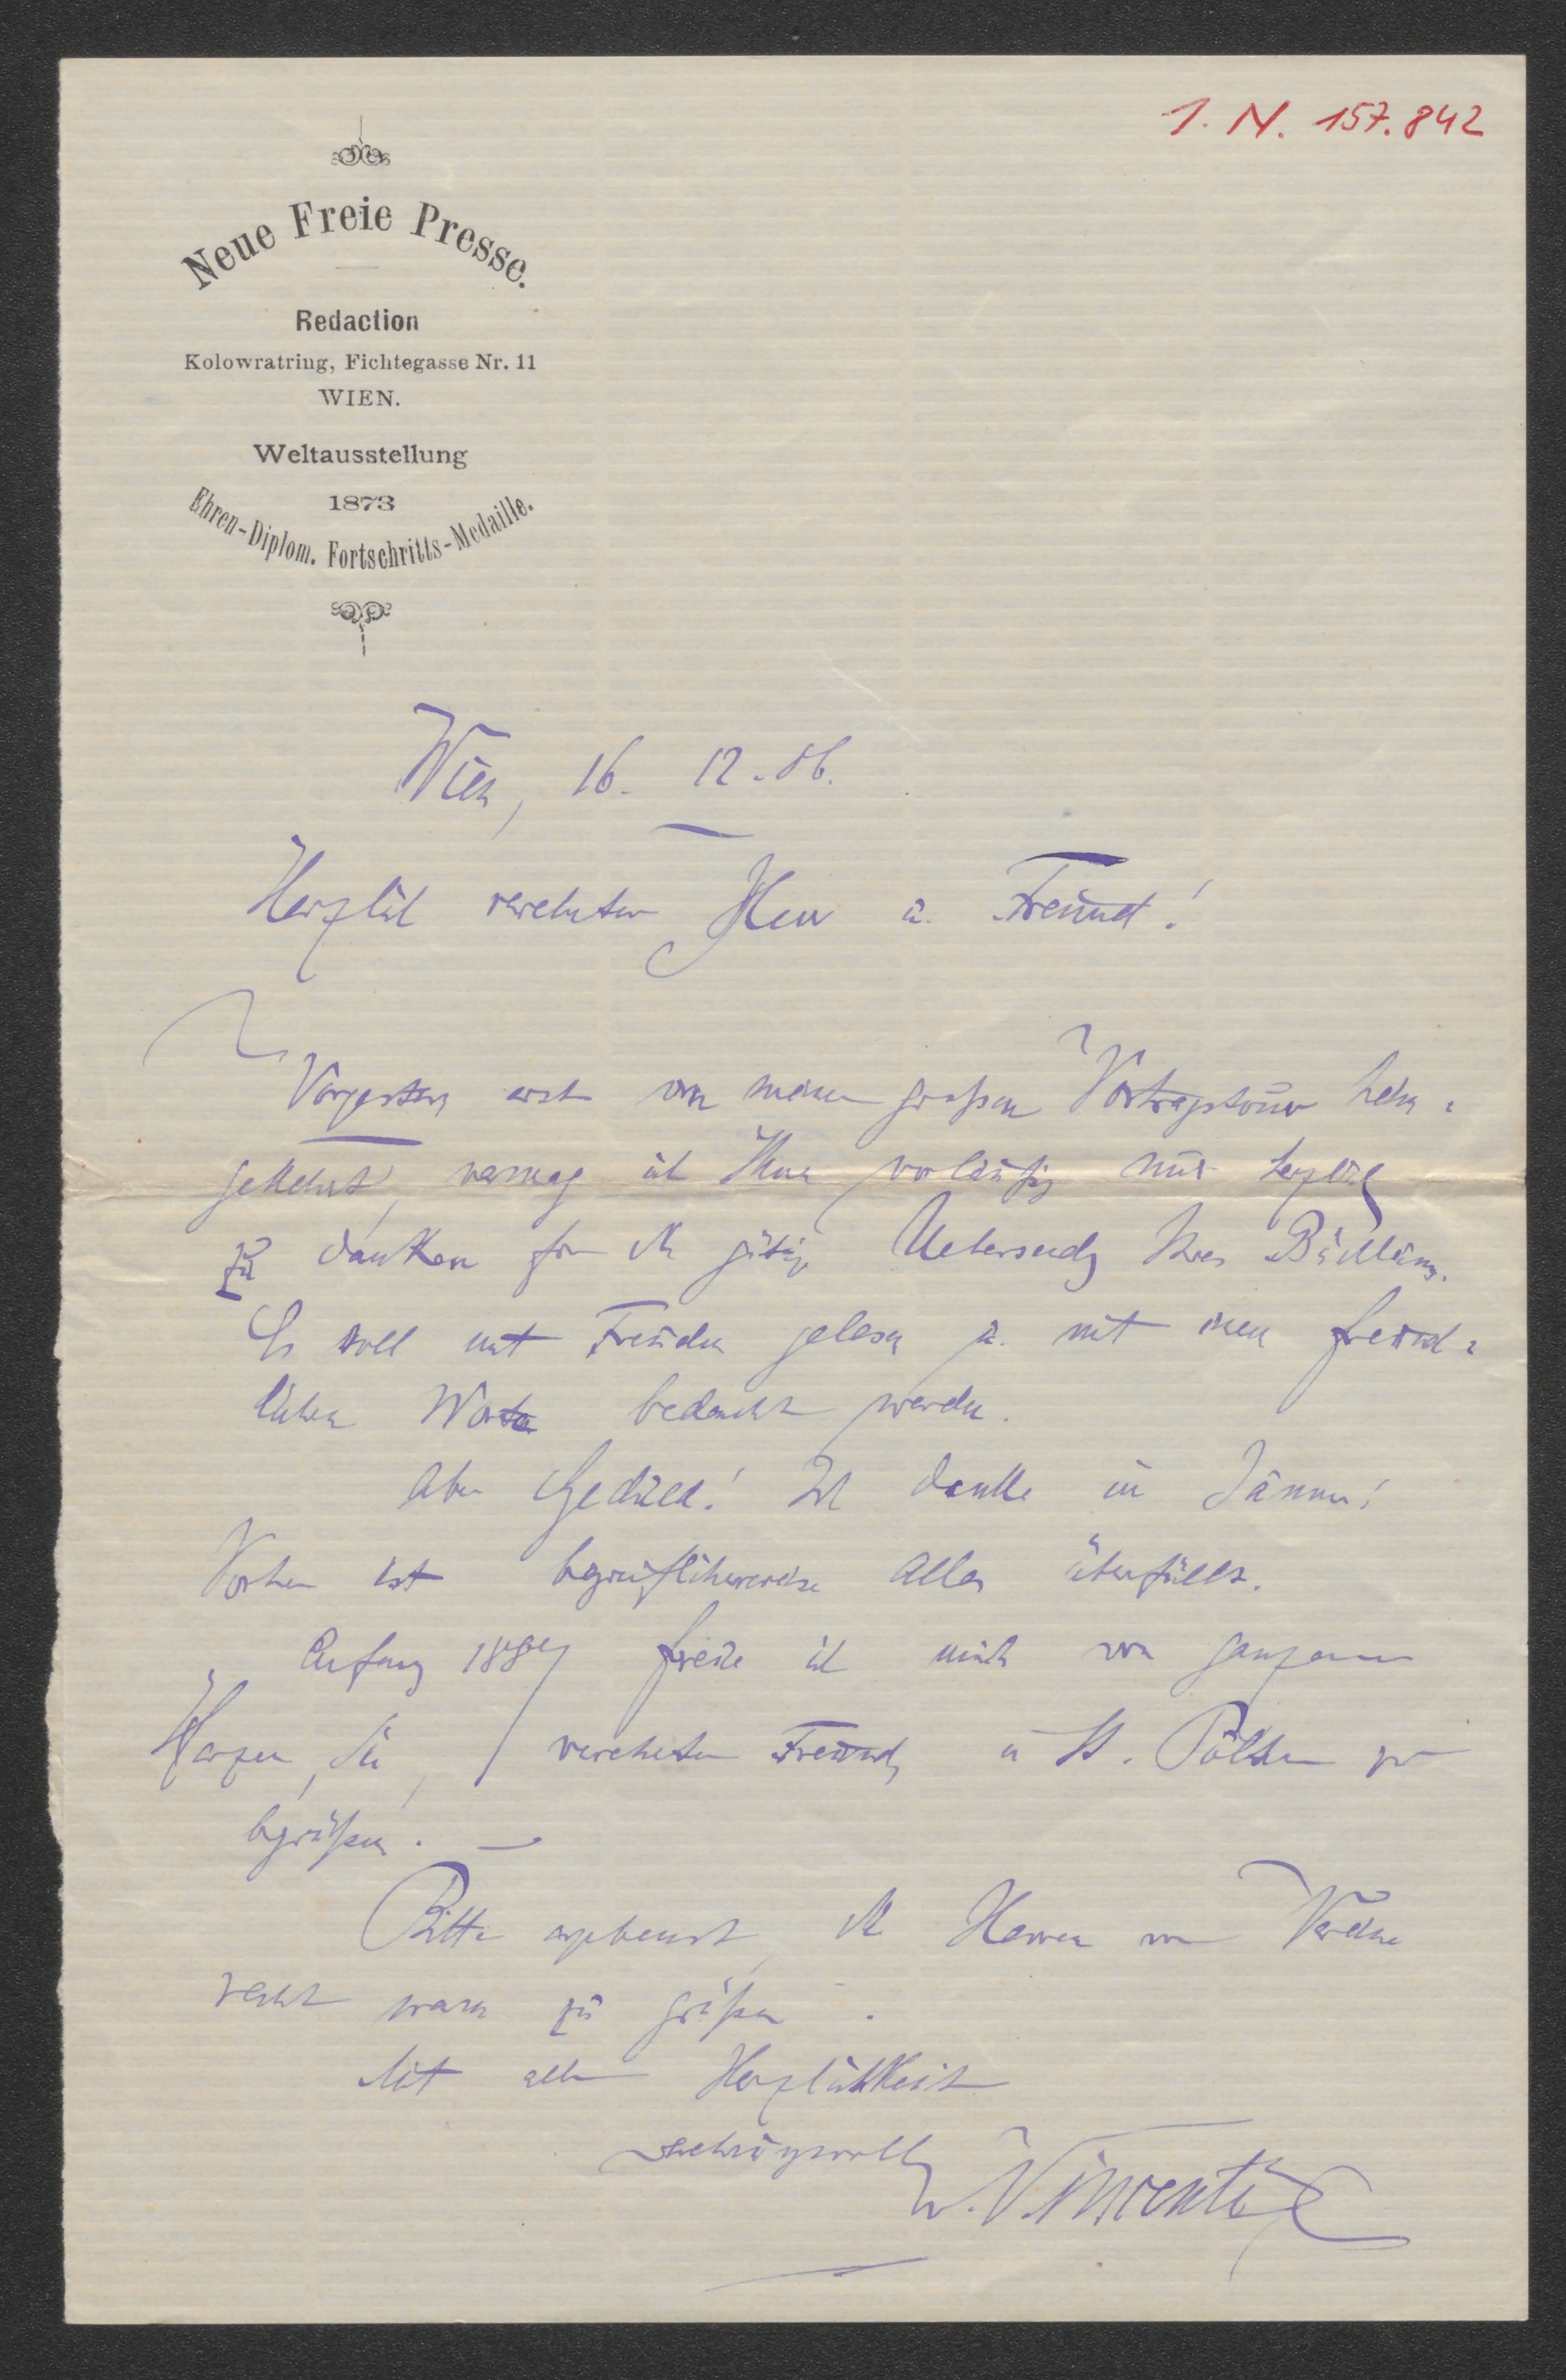 I. N. 157.842
Neue Freie Presse.
Redaction
Kolowratring, Fichtegasse Nr. 11
WIEN.
Weltausstellung
1873
Ehren-Diplom. Fortschritts-Medaille.
Wien, 16. 12. 86.
Herzlich verehrter Herr u. Freund!
Vorgestern erst von meiner großen Vortragstour heim-
gekehrt, vermag ich Ihnen vorläufig nur herzlich
zu danken für die gütige Uebersendg Ihres Büchleins.
Es soll mit Freuden gelesen u. mit einem freund-
lichen Worte bedacht werden.
Aber Geduld! Ich denke im Jänner!
Vorher ist begreiflicherweise Alles überfüllt.
Anfang 1887 freue ich mich von ganzem
Herzen, Sie, verehrter Freund, in St. Pölten zu
begrüßen. —
Bitte ergebenst, die Herren vom Vereine
recht warm zu grüßen.
Mit aller Herzlichkeit
verehrungsvoll
v. Vincenti